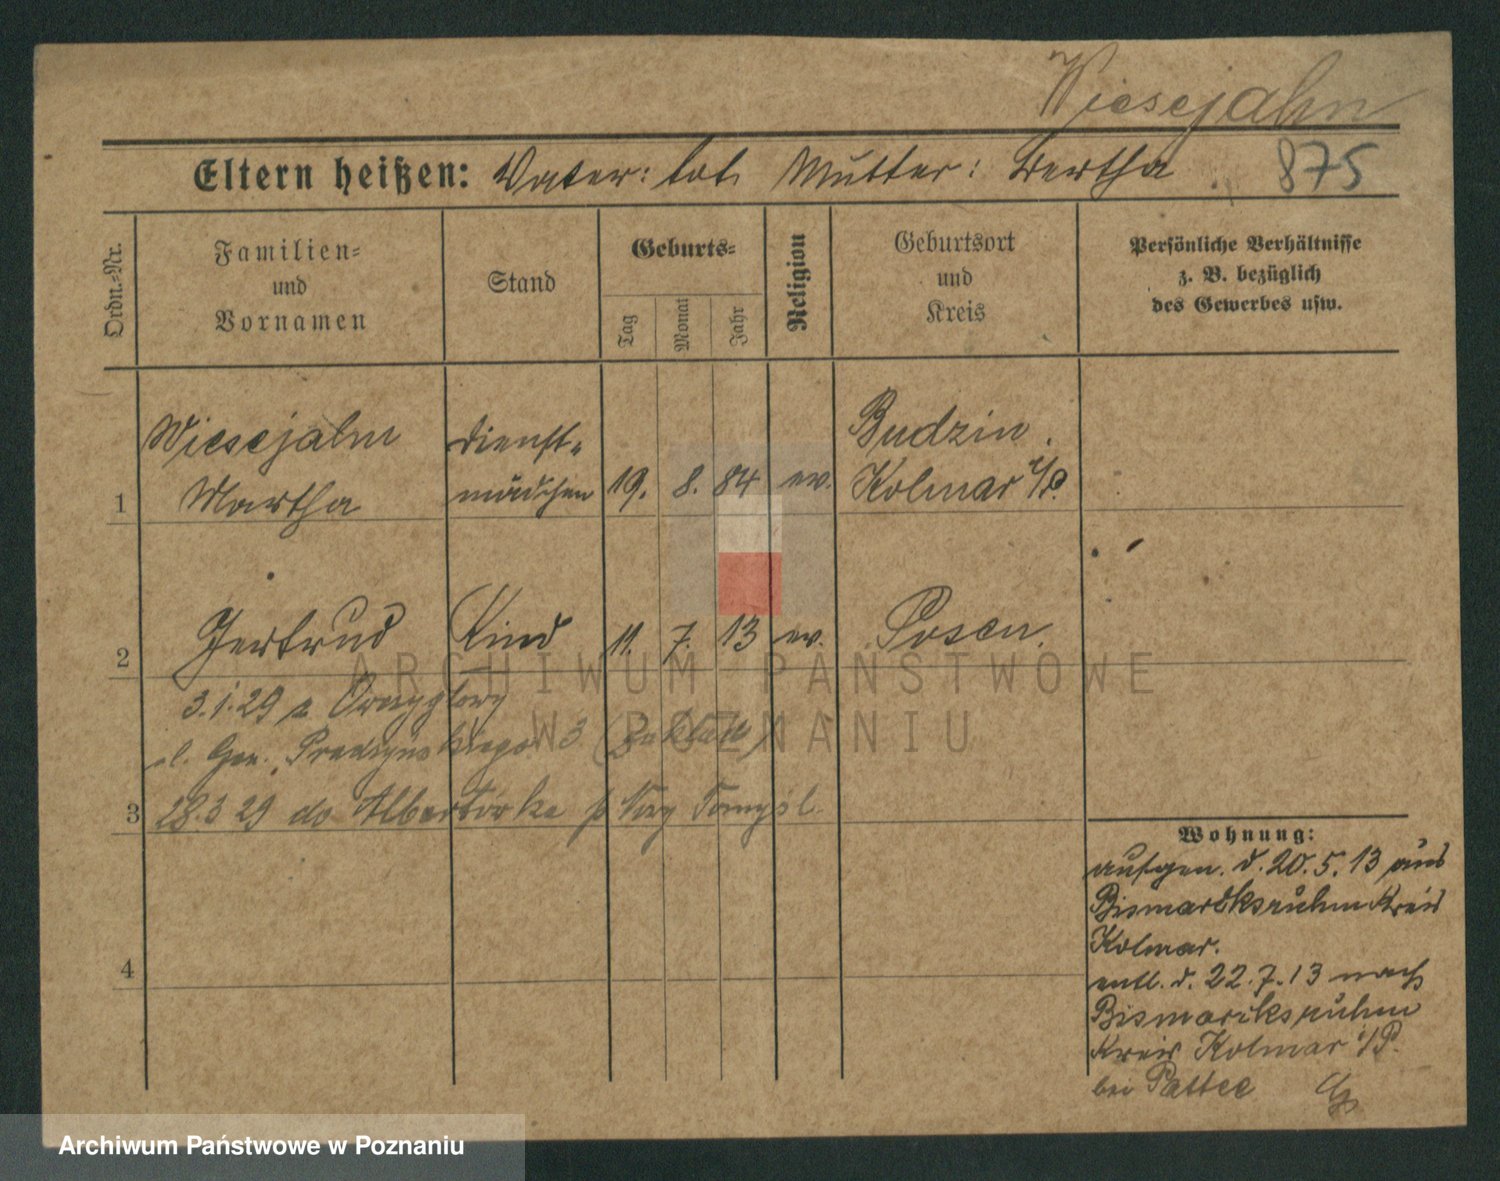 Wiesejahn
Eltern heißen: Vater: tot. Mutter: Bertha
875
Ordn.-Nr.
Familien- und Vornamen
Stand
Geburts-
Tag
Monat
Jahr
Religion
Geburtsort und Kreis
Persönliche Verhältnisse
z. B. bezüglich
des Gewerbes usw.
Wiesejahn Dienst- Budzin
1 Martha mädchen 19. 8. 84 ev. Kolmar i/P.
2 Gertrud Kind 11. 7. 13 ev. Posen.
3.1.29
Gen. 3
3 28.3 29 do p Tomyśl.
4
Wohnung:
aufgen. d. 20.5.13 aus
Bismarcksruhm Kreis
Kolmar.
entl. d. 22.7.13 nach
Bismarcksruhm
Kreis Kolmar i/P.
bei
ARCHIWUM PAŃSTWOWE
W POZNANIU
Archiwum Państwowe w Poznaniu